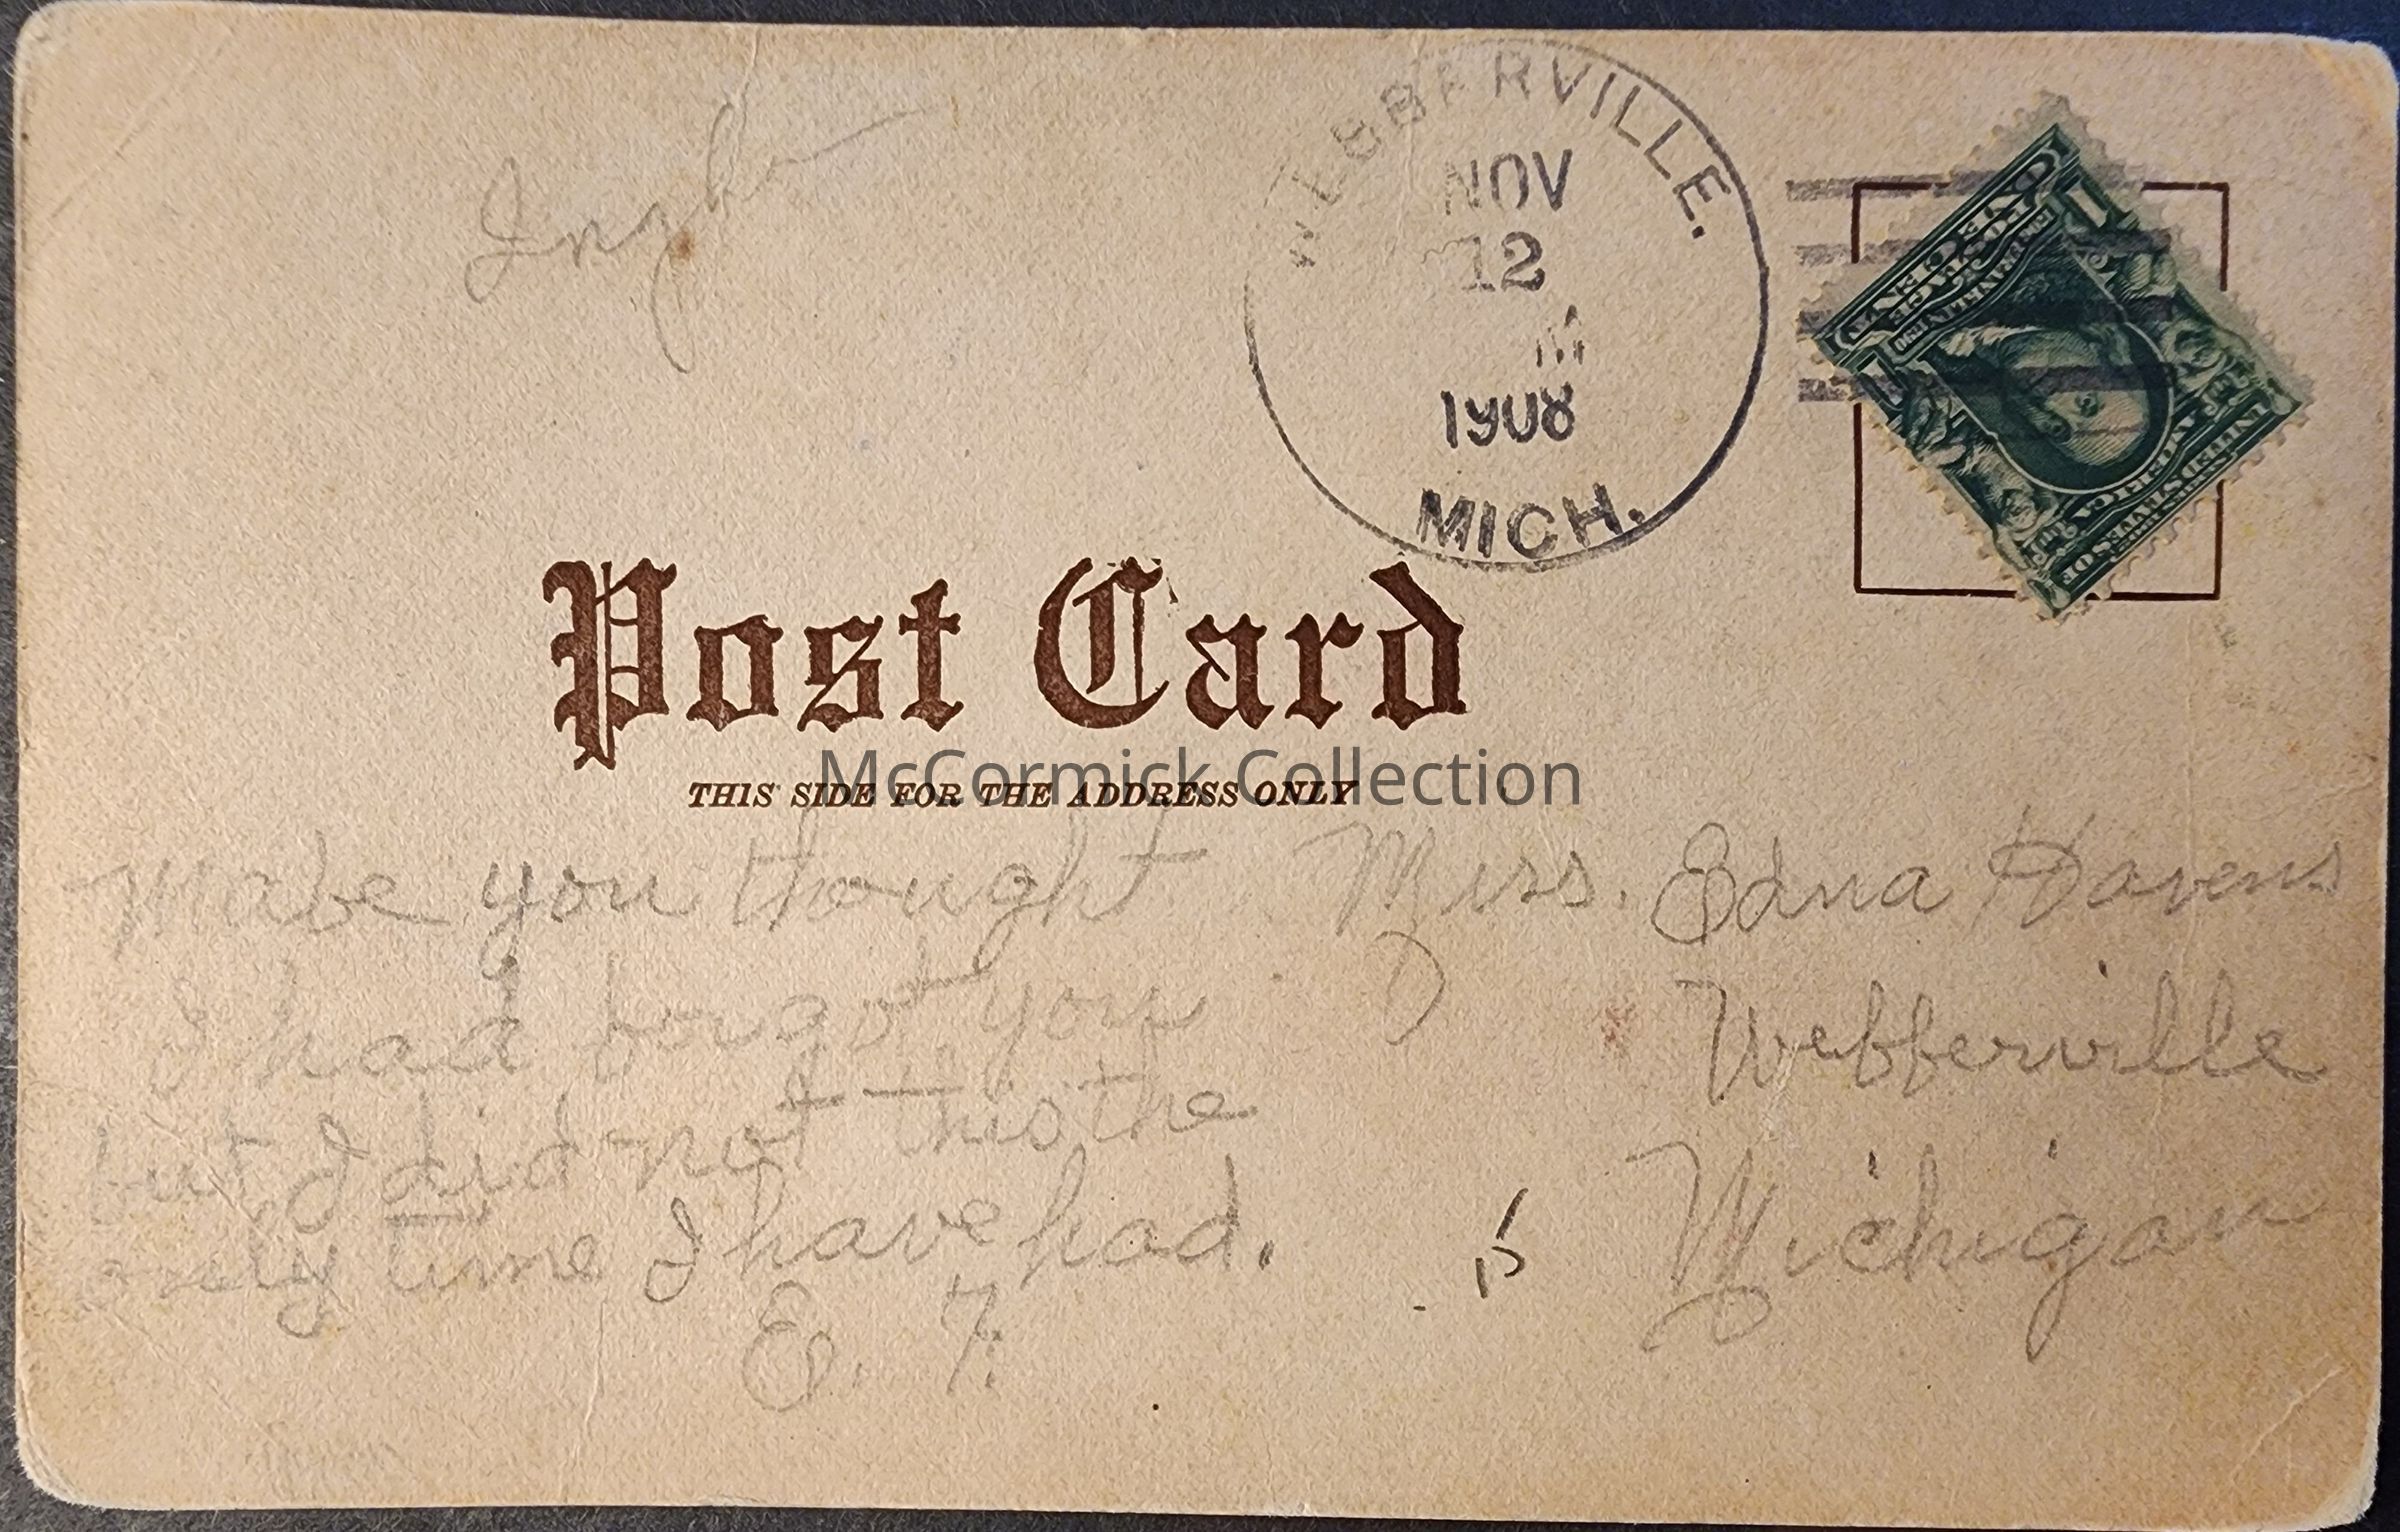 WEBBERVILLE.
NOV
12
M
1908
MICH.
ONE CENT
UNITED STATES OF
AMERICA
Post Card
THIS SIDE FOR THE ADDRESS ONLY
McCormick Collection
Mabe you thought
I had forgot you
but I did not this the
only time I have had.
E. F.
Miss. Edna Havens
Webberville
Michigan